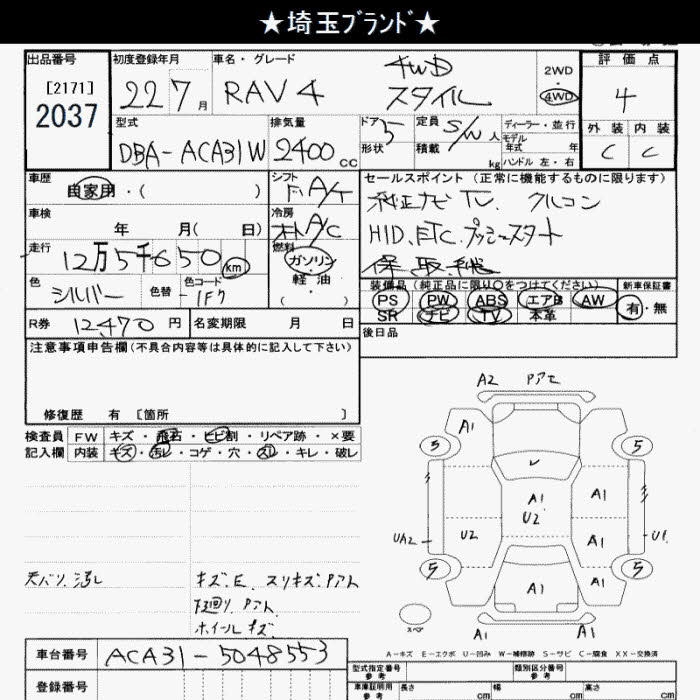 ★埼玉ブランド★
出品番号 初度登録年月 車名・グレード 4WD 2WD 評価点
[2171] 22 7月 RAV4 スタイル 4WD 4
2037
型式 排気量 ドア 5 定員 S/W 人 ディーラー・並行 外装 内装
DBA-ACA31W 2400cc 形状 積載 kg モデル年式 年 C C
ハンドル 左・右
車歴 シフト セールスポイント (正常に機能するものに限ります)
自家用・( ) F A/T 純正ナビ TV. クルコン
車検 冷房
年 月( 日) A/C HID. ETC. プッシュスタート
走行 燃料
12万5千650 km ガソリン 保 取
色 色替 色コード 軽油 装備品 (純正品に限り〇をつけてください) 新車保証書
シルバー 1F7 ( ) PS PW ABS エアB AW 有・無
SR ナビ TV 本革
R券 12470円 名変期限 月 日 後日品
注意事項申告欄(不具合内容等は具体的に記入して下さい)
修復歴 有 [箇所 ]
検査員 FW キズ・飛石・ヒビ割・リペア跡・×要
記入欄 内装 キズ・汚レ・コゲ・穴・スレ・キレ・破レ
A2 Pアセ
A1
5 5
A1 A1
U2
UA2 U2 A1 U1
5 5
A1 A1
スペア
A1 A1
天バリ 汚レ キズ.E. スリキズ.Pアト
下廻リ Pアト
ホイールキズ
A-キズ E-エクボ U-凹み W-補修跡 S-サビ C-腐食 XX-交換済
車台番号 ACA31-5048553 型式指定番号 参考 類別区分番号 参考
登録番号 車庫証明用 参考 長さ cm 幅 cm 高さ cm